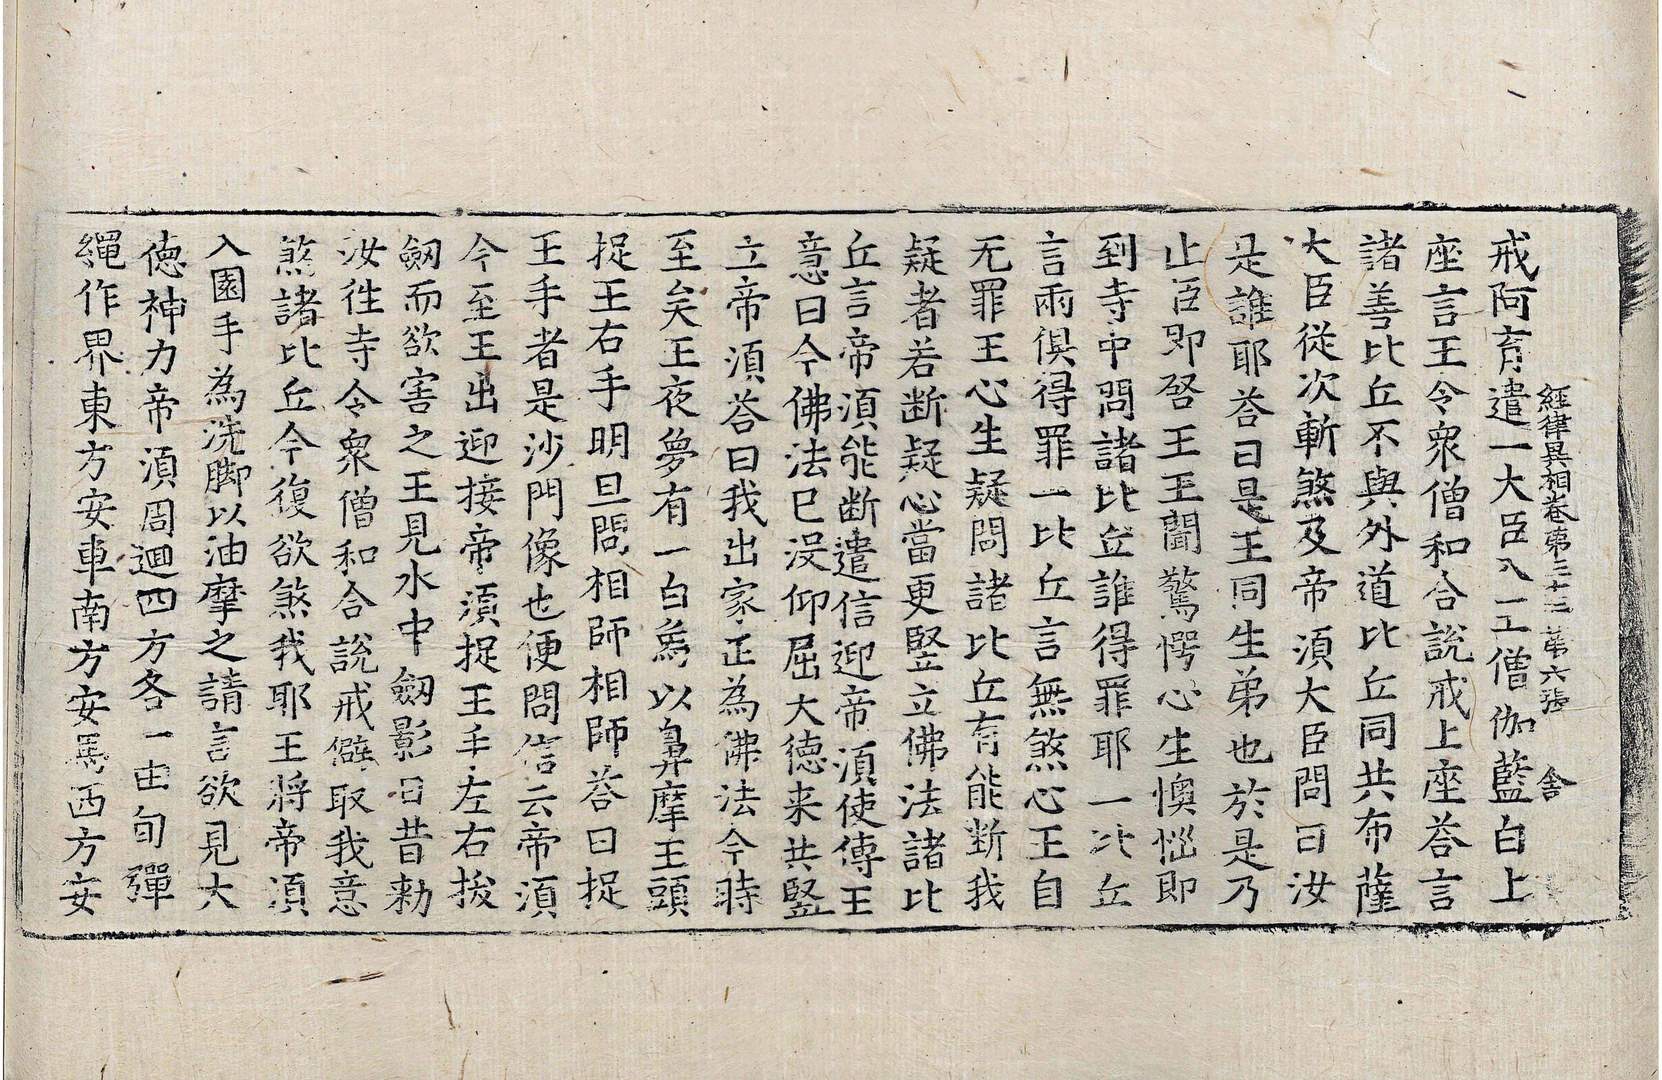 經律異相卷第三十三 第六張 舍
戒阿育遣一大臣入工僧伽藍白上
座言王令衆僧和合說戒上座荅言
諸善比丘不與外道比丘同共布薩
大臣從次斬煞及帝湏大臣問曰汝
是誰耶荅曰是王同生弟也於是乃
止臣即啓王王聞驚愕心生懊惱即
到寺中問諸比丘誰得罪耶一比丘
言兩俱得罪一比丘言無煞心王自
无罪王心生疑問諸比丘有能断我
疑者若断疑心當更竪立佛法諸比
丘言帝湏能断遣信迎帝湏使傳王
意曰今佛法已没仰屈大德来共竪
立帝湏荅曰我出家正為佛法今時
至矣王夜夢有一白象以鼻摩王頭
捉王右手明旦問相師相師荅曰捉
王手者是沙門像也便問信云帝湏
今至王出迎接帝湏捉王手左右拔
劒而欲害之王見水中劒影曰昔勑
汝往寺令衆僧和合說戒僻取我意
煞諸比丘今復欲煞我耶王將帝湏
入園手為洗脚以油摩之請言欲見大
德神力帝湏周迴四方各一由旬彈
繩作界東方安車南方安馬西方安